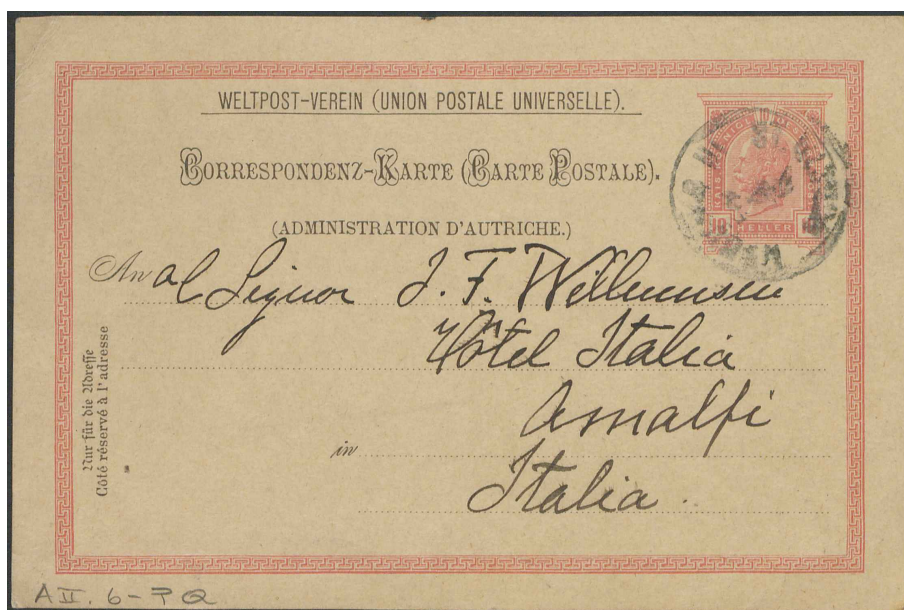 WELTPOST-VEREIN (UNION POSTALE UNIVERSELLE).
CORRESPONDENZ-KARTE (CARTE POSTALE).
(ADMINISTRATION D'AUTRICHE.)
An al Signor J. F. Willumsen
Hôtel Italia
Amalfi
in
Italia.
Nur für die Adresse
Côté réservé à l'adresse
10 HELLER 10
WIEN
A II. 6 - P Q